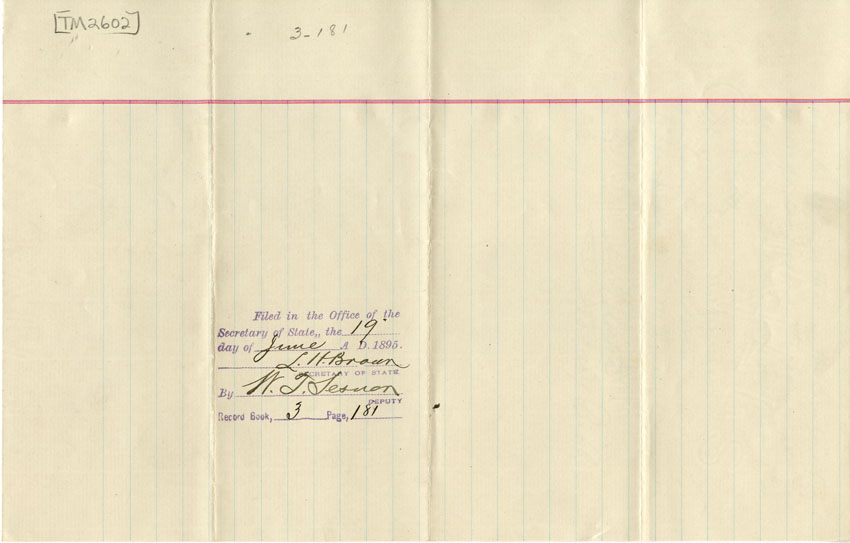 [TM2602]
3-181
Filed in the Office of the
Secretary of State,, the 19
day of June A D. 1895.
L. H. Brown
SECRETARY OF STATE
By W. T. Sesnon
DEPUTY
Record Book, 3 Page, 181